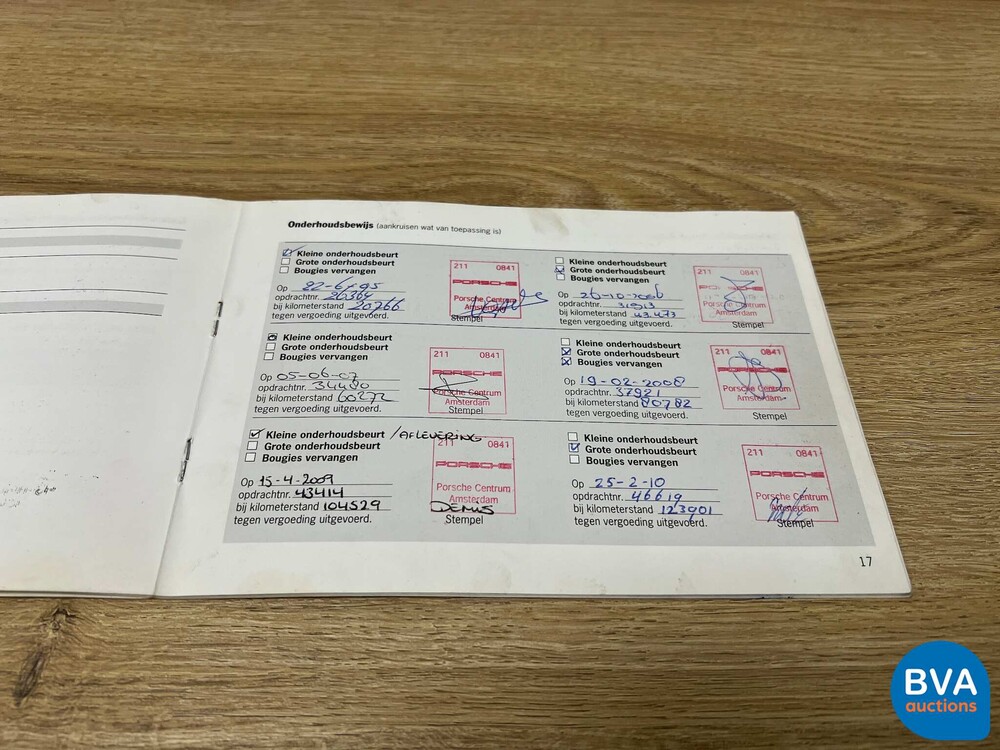 Onderhoudsbewijs (aankruisen wat van toepassing is)
Kleine onderhoudsbeurt
Grote onderhoudsbeurt
Bougies vervangen
Op
opdrachtnr. 26364
bij kilometerstand 20766
tegen vergoeding uitgevoerd.
211 0841
PORSCHE
Porsche Centrum
Amsterdam
Stempel
Kleine onderhoudsbeurt
Grote onderhoudsbeurt
Bougies vervangen
Op 26-10-2006
opdrachtnr.
bij kilometerstand 43473
tegen vergoeding uitgevoerd.
211 0841
PORSCHE
Porsche Centrum
Amsterdam
Stempel
Kleine onderhoudsbeurt
Grote onderhoudsbeurt
Bougies vervangen
Op 05-06-07
opdrachtnr. 34480
bij kilometerstand 60272
tegen vergoeding uitgevoerd.
211 0841
PORSCHE
Porsche Centrum
Amsterdam
Stempel
Kleine onderhoudsbeurt
Grote onderhoudsbeurt
Bougies vervangen
Op 19-02-2008
opdrachtnr. 37921
bij kilometerstand 80782
tegen vergoeding uitgevoerd.
211 0841
PORSCHE
Porsche Centrum
Amsterdam
Stempel
Kleine onderhoudsbeurt /AFLEVERING
Grote onderhoudsbeurt
Bougies vervangen
Op 15-4-2009
opdrachtnr. 43414
bij kilometerstand 104529
tegen vergoeding uitgevoerd.
211 0841
PORSCHE
Porsche Centrum
Amsterdam
DENNIS
Stempel
Kleine onderhoudsbeurt
Grote onderhoudsbeurt
Bougies vervangen
Op 25-2-10
opdrachtnr. 46619
bij kilometerstand 123901
tegen vergoeding uitgevoerd.
211 0841
PORSCHE
Porsche Centrum
Amsterdam
Stempel
17
BVA
auctions